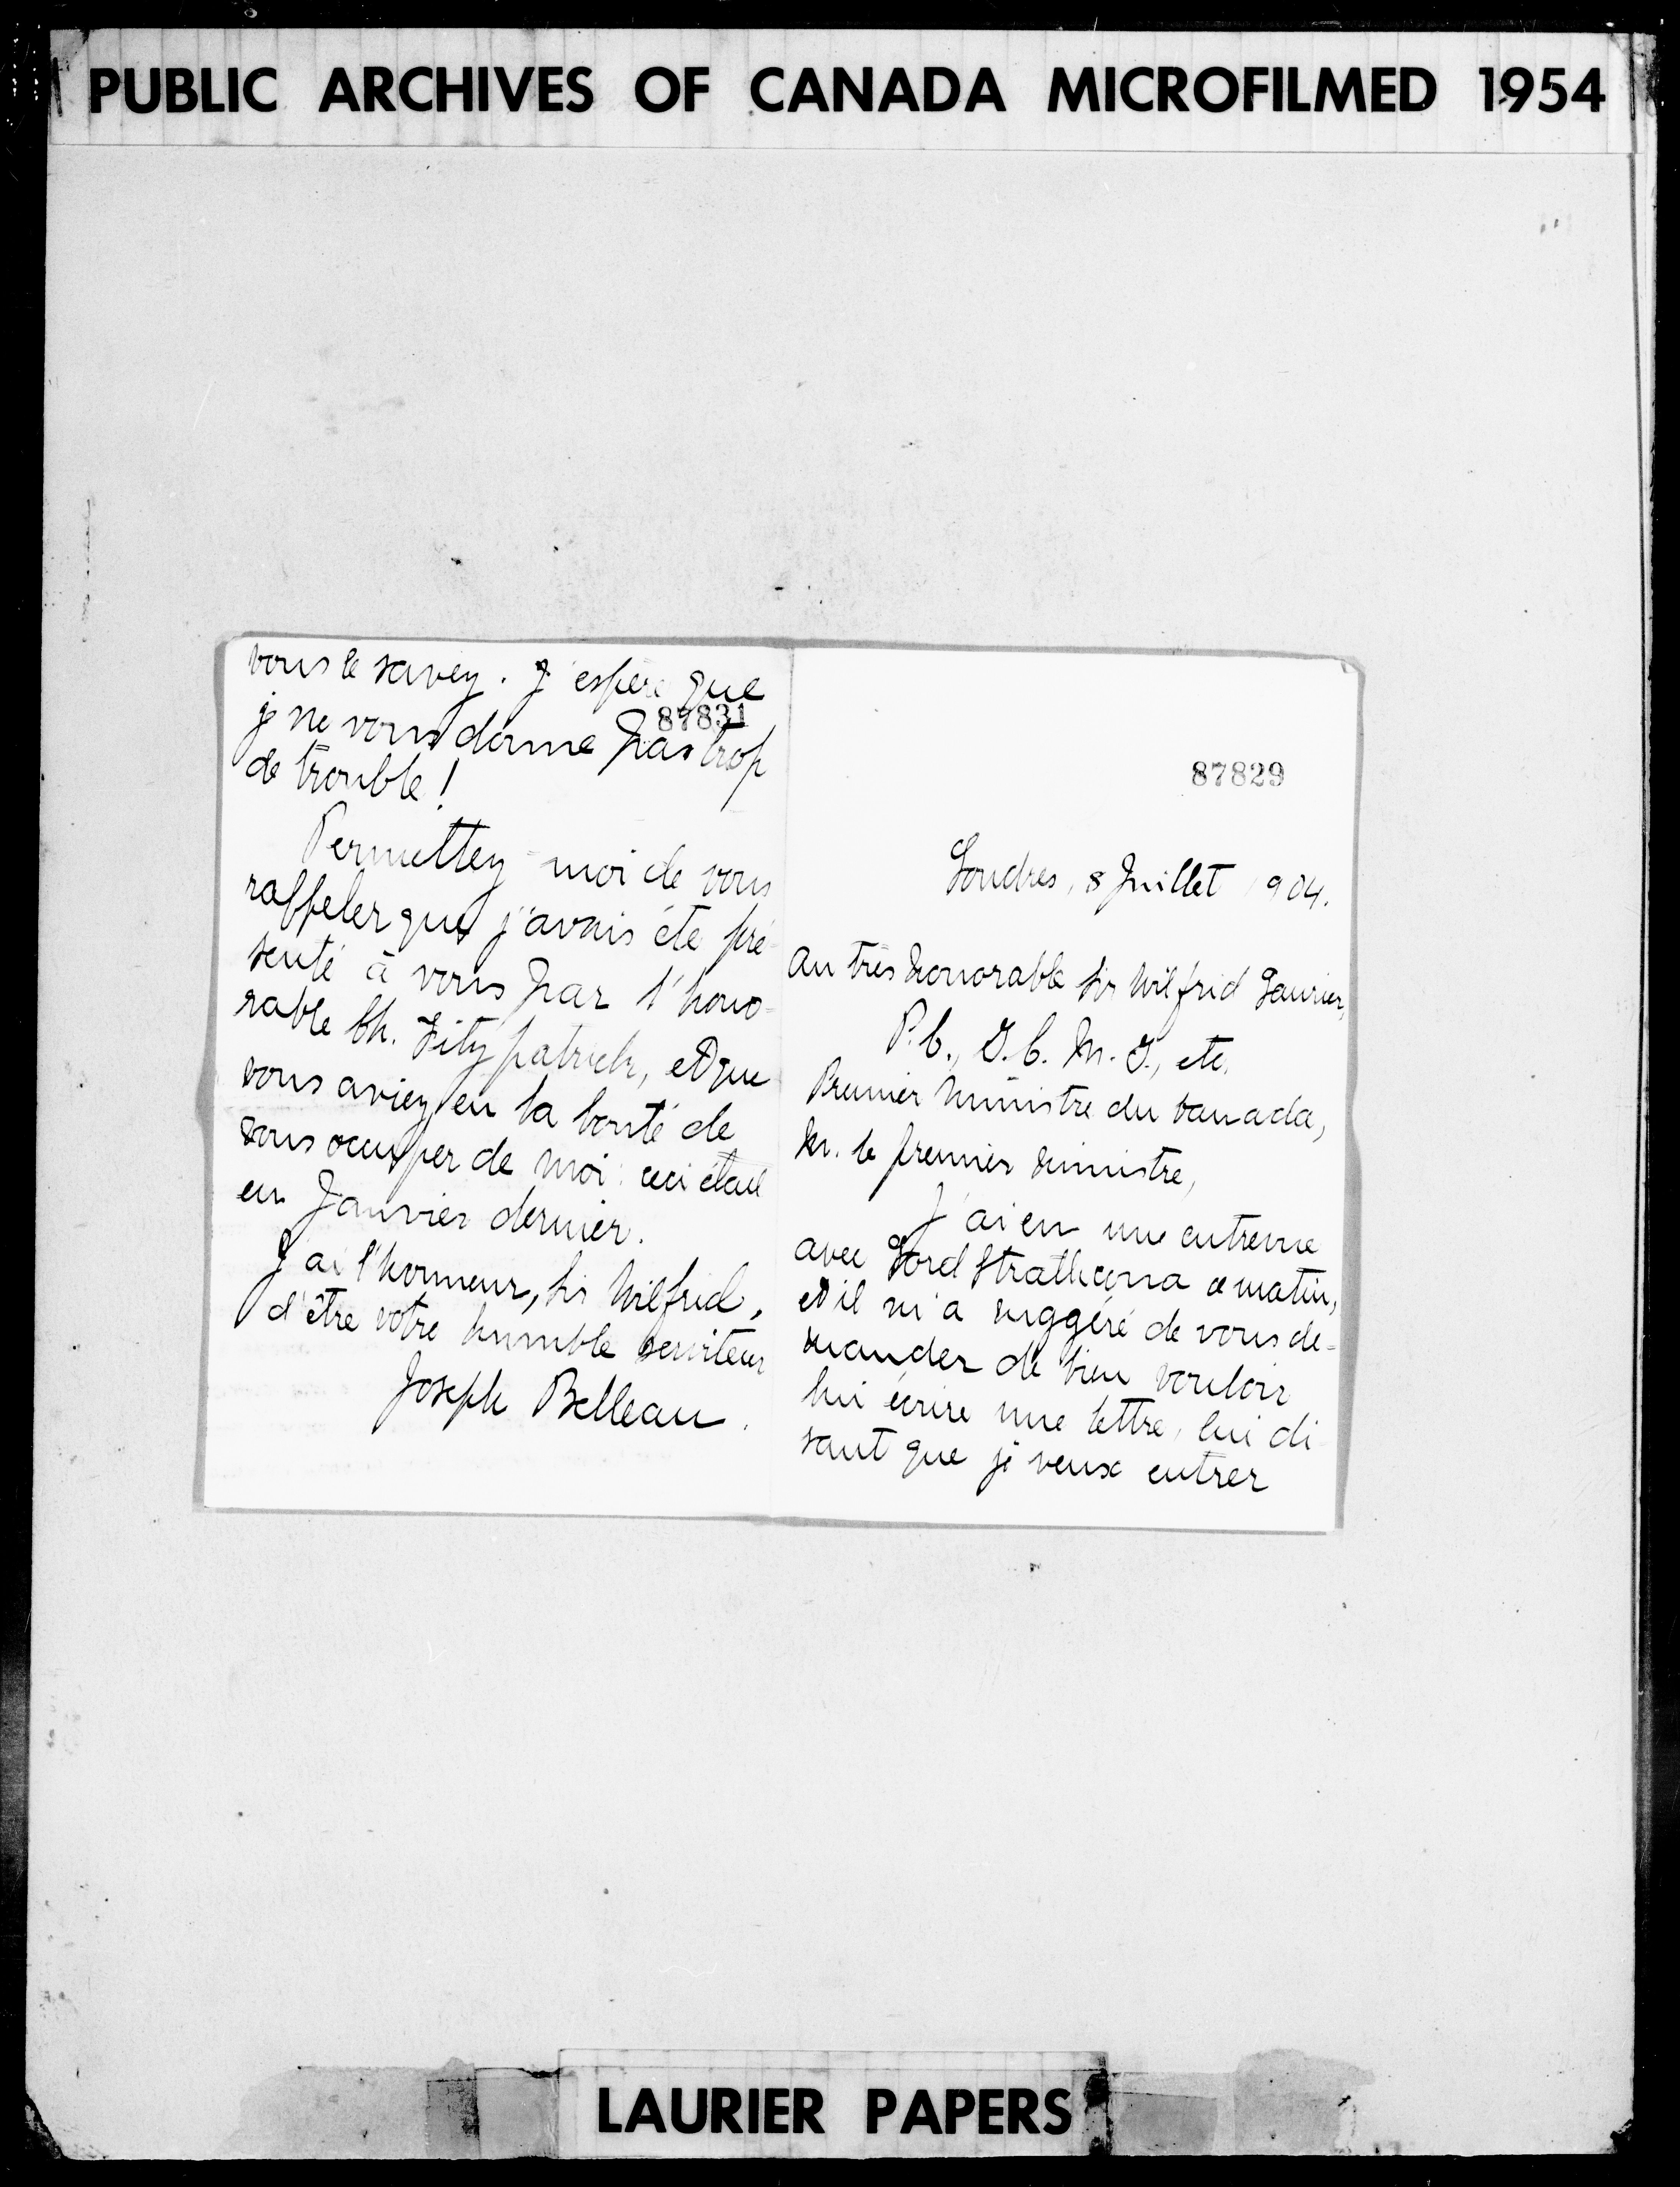 PUBLIC ARCHIVES OF CANADA MICROFILMED 1954
vous le savez. J'espère que
87831
je ne vous donne pas trop
de trouble!
Permettez-moi de vous
rappeler que j'avais été pré-
senté à vous par l'hono-
rable Ch. Fitzpatrick, et que
vous aviez eu la bonté de
vous occuper de moi: ceci était
en Janvier dernier.
J'ai l'honneur, Sir Wilfrid,
d'être votre humble serviteur
Joseph Belleau.
87829
Londres, 8 Juillet 1904.
Au très honorable Sir Wilfrid Laurier,
P.C., G.C.M.G., etc.
Premier Ministre du Canada,
M. le premier Ministre,
J'ai eu une entrevue
avec Lord Strathcona ce matin,
et il m'a suggéré de vous de-
mander de bien vouloir
lui écrire une lettre, lui di
sant que je veux entrer
LAURIER PAPERS